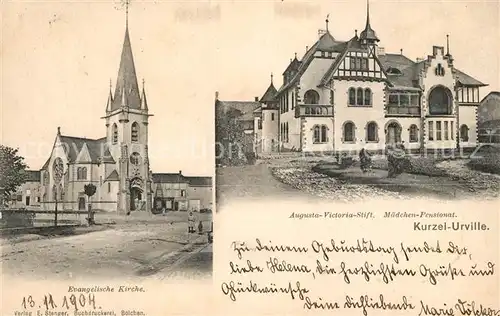 Augusta-Victoria-Stift, Mädchen-Pensionat.
Kurzel-Urville.
Evangelische Kirche.
13. 11. 1904.
Verlag E. Stenger, Buchdruckerei, Bolchen.
Zu deinem Geburtstag sendet dir,
liebe Helena die herzlichsten Grüße und
Glückwünsche
deine dichliebende Marie